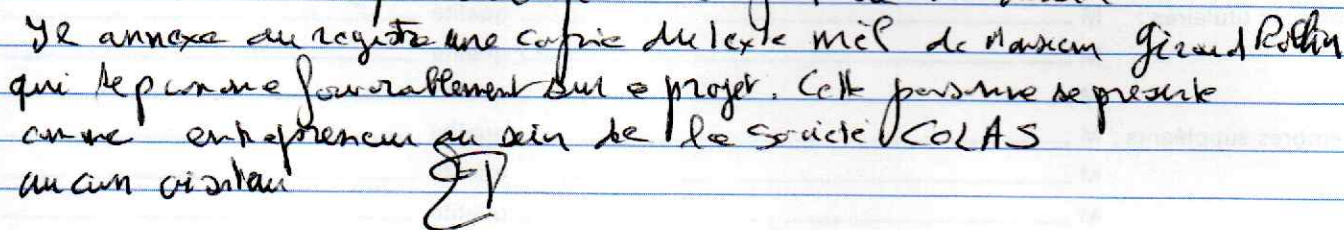 Je annexe au registre une copie du texte mèl de Monsieur Giraud Rollin
qui se prononce favorablement sur ce projet. Cette personne se présente
comme entrepreneur au sein de la Société COLAS
aucun visiteur